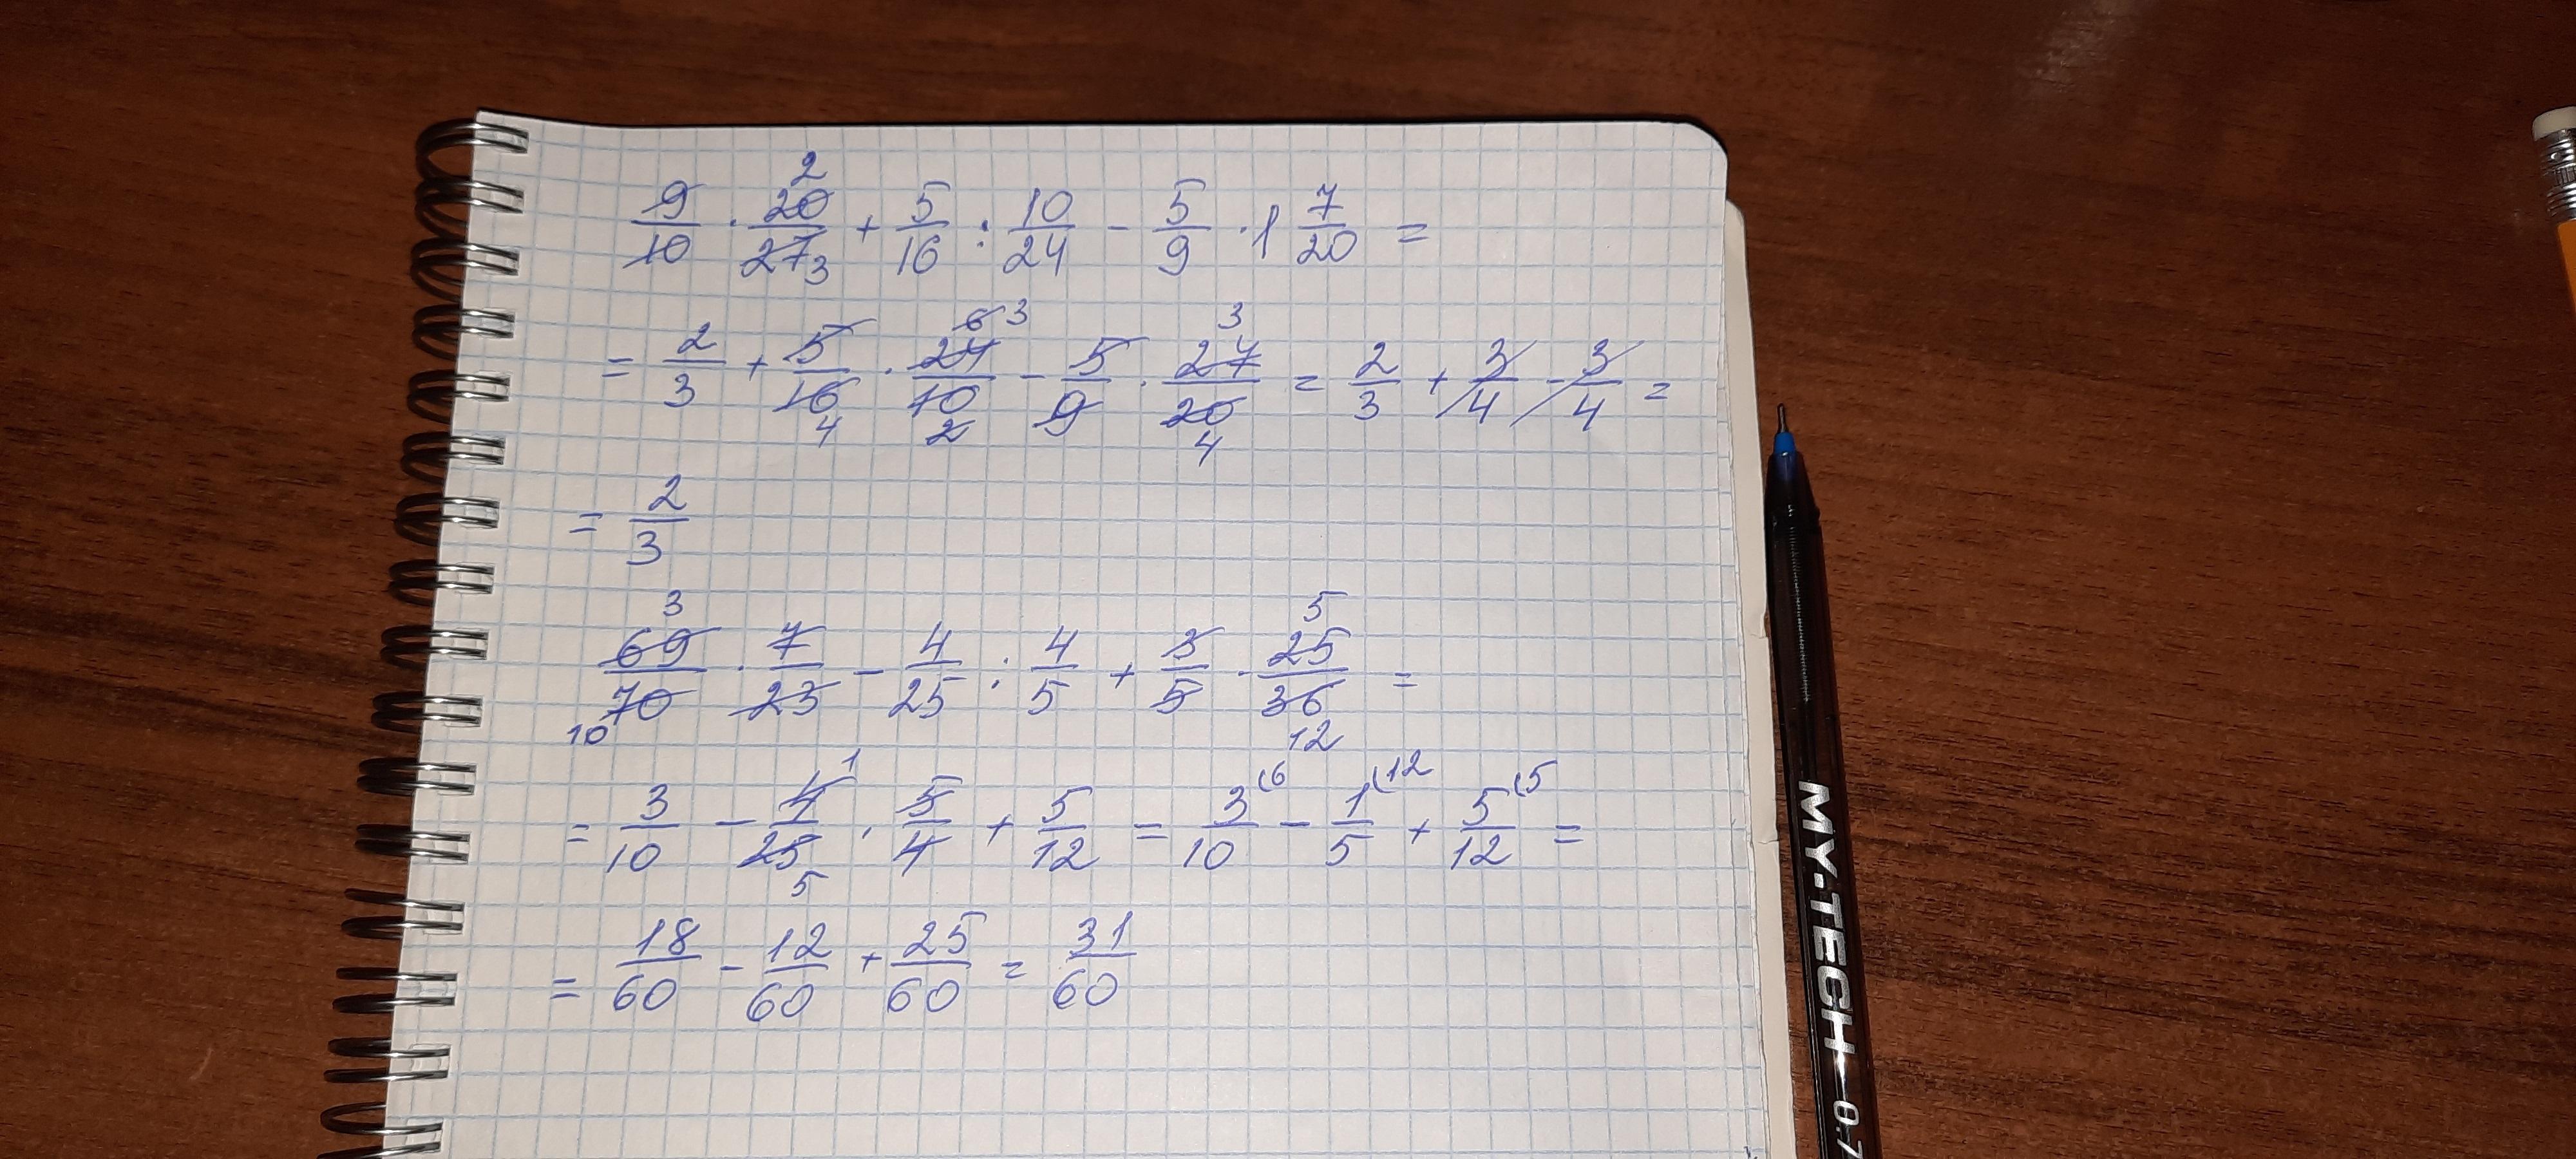 9/10 · 20/27 + 5/16 : 10/24 - 5/9 · 1 7/20 =
= 2/3 + 5/16 · 24/10 - 5/9 · 27/20 = 2/3 + 3/4 - 3/4 =
= 2/3
69/70 · 7/23 - 4/25 : 4/5 + 3/5 · 25/36 =
= 3/10 - 4/25 · 5/4 + 5/12 = 3/10 (6 - 1/5 (12 + 5/12 (5 =
= 18/60 - 12/60 + 25/60 = 31/60
MY-TECH 0.7